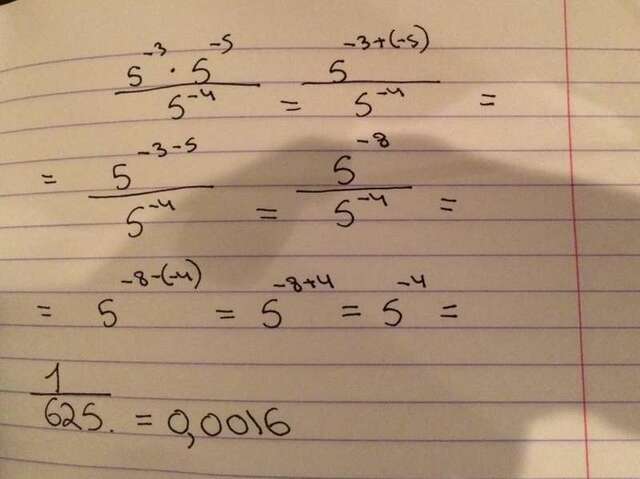 5⁻³ · 5⁻⁵ / 5⁻⁴ = 5⁻³⁺⁽⁻⁵⁾ / 5⁻⁴ =
= 5⁻³⁻⁵ / 5⁻⁴ = 5⁻⁸ / 5⁻⁴ =
= 5⁻⁸⁻⁽⁻⁴⁾ = 5⁻⁸⁺⁴ = 5⁻⁴ =
1 / 625. = 0,0016